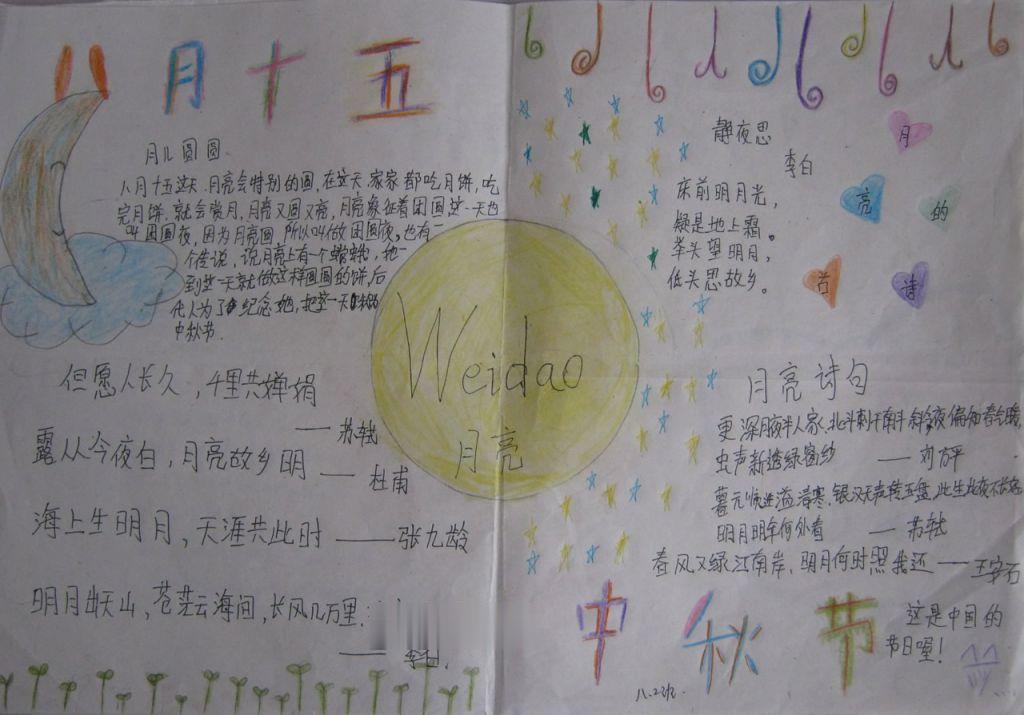 八月十五
月儿圆圆.
八月十五这天.月亮会特别的圆,在这天家家都吃月饼,吃
完月饼.就会赏月,月亮又圆又亮,月亮象征着团圆这一天也
叫团圆夜,因为月亮圆,所以叫做团圆夜。也有一
个传说,说月亮上有个嫦娥,她一
到这一天就做这样圆圆的饼,后
代人为了纪念她,把这一天
中秋节.
但愿人长久,千里共婵娟
——苏轼
露从今夜白,月亮故乡明——杜甫
海上生明月,天涯共此时——张九龄
明月出天山,苍茫云海间,长风几万里.
Weidao
月亮
静夜思
李白
床前明月光,
疑是地上霜。
举头望明月,
低头思故乡。
月亮的古诗
月亮诗句
更深月夜半人家,北斗南斗夜偏知春
虫声新透绿窗纱——刘方平
暮云溢清寒,银汉无声转玉盘,此生此夜不长
明月明年何处看——苏轼
春风又绿江南岸,明月何时照我还——王安石
中秋节
这是中国的
节日喔!
八.2班.